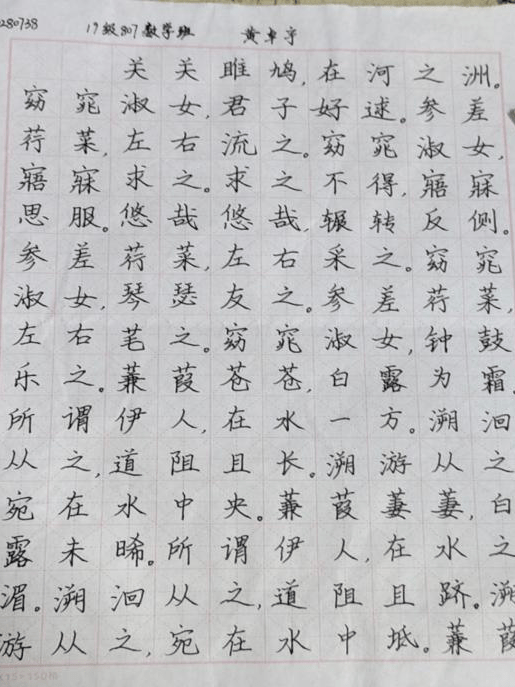 280738 19级807数学班 黄卓宇
关关雎鸠,在河之洲。
窈窕淑女,君子好逑。参差
荇菜,左右流之。窈窕淑女,
寤寐求之。求之不得,寤寐
思服。悠哉悠哉,辗转反侧。
参差荇菜,左右采之。窈窕
淑女,琴瑟友之。参差荇菜,
左右芼之。窈窕淑女,钟鼓
乐之。蒹葭苍苍,白露为霜
所谓伊人,在水一方。溯洄
从之,道阻且长。溯游从之
宛在水中央。蒹葭萋萋,白
露未晞。所谓伊人,在水之
湄。溯洄从之,道阻且跻。溯
游从之,宛在水中坻。蒹葭